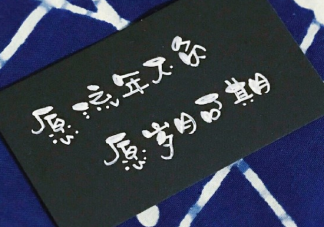 愿流年不负
愿岁月可期